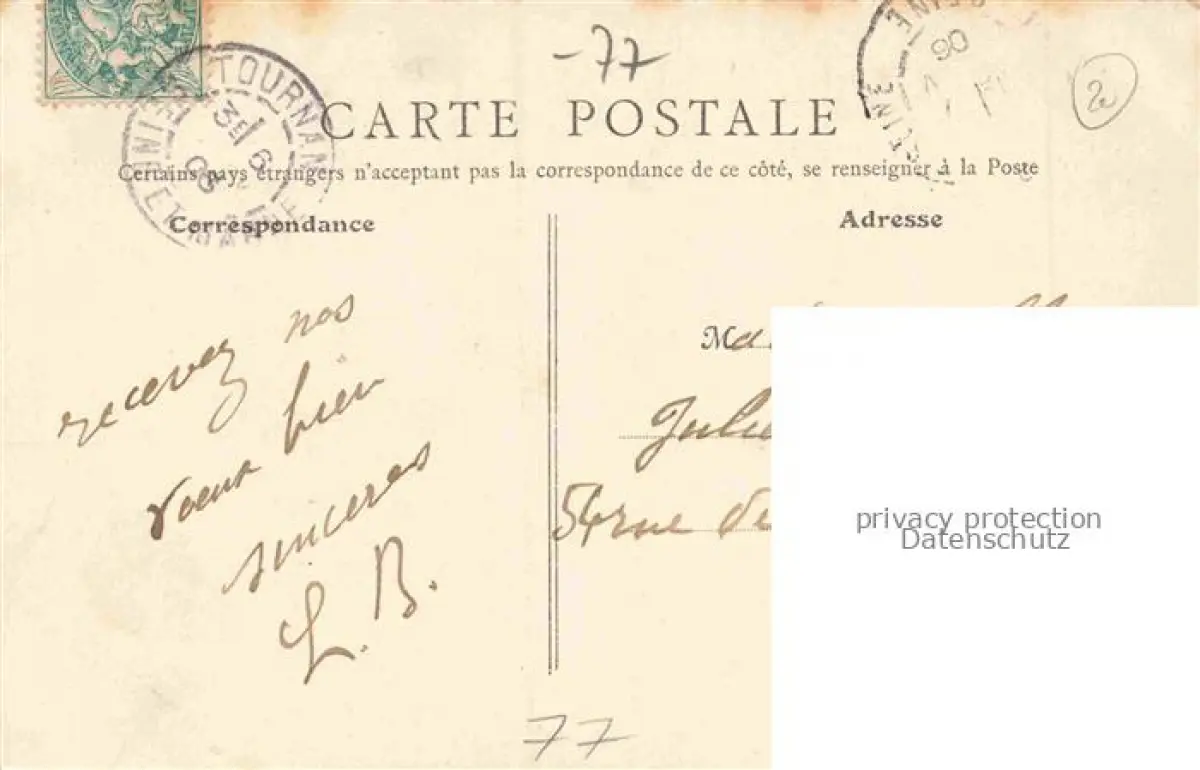 -77
2
CARTE POSTALE
Certains pays étrangers n'acceptant pas la correspondance de ce côté, se renseigner à la Poste
TOURNAN
SEINE ET MARNE
Correspondance
Adresse
recevez nos
voeux bien
sincères
L. B.
Ma
Julie
54 rue de
privacy protection
Datenschutz
77